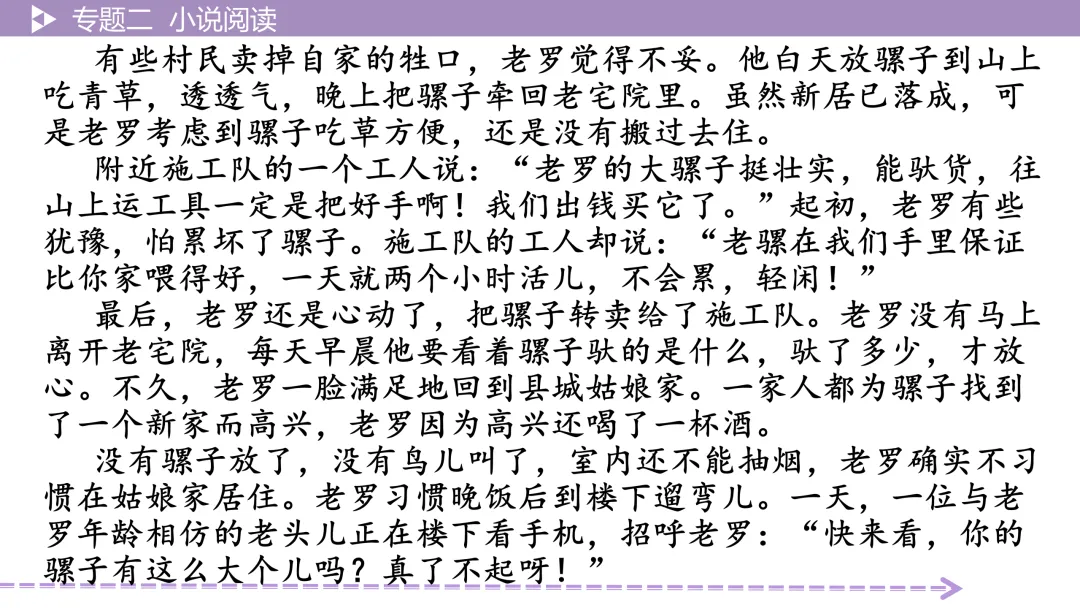 专题二 小说阅读
有些村民卖掉自家的牲口，老罗觉得不妥。他白天放骡子到山上
吃青草，透透气，晚上把骡子牵回老宅院里。虽然新居已落成，可
是老罗考虑到骡子吃草方便，还是没有搬过去住。
附近施工队的一个工人说：“老罗的大骡子挺壮实，能驮货，往
山上运工具一定是把好手啊！我们出钱买它了。”起初，老罗有些
犹豫，怕累坏了骡子。施工队的工人却说：“老骡在我们手里保证
比你家喂得好，一天就两个小时活儿，不会累，轻闲！”
最后，老罗还是心动了，把骡子转卖给了施工队。老罗没有马上
离开老宅院，每天早晨他要看着骡子驮的是什么，驮了多少，才放
心。不久，老罗一脸满足地回到县城姑娘家。一家人都为骡子找到
了一个新家而高兴，老罗因为高兴还喝了一杯酒。
没有骡子放了，没有鸟儿叫了，室内还不能抽烟，老罗确实不习
惯在姑娘家居住。老罗习惯晚饭后到楼下遛弯儿。一天，一位与老
罗年龄相仿的老头儿正在楼下看手机，招呼老罗：“快来看，你的
骡子有这么大个儿吗？真了不起呀！”